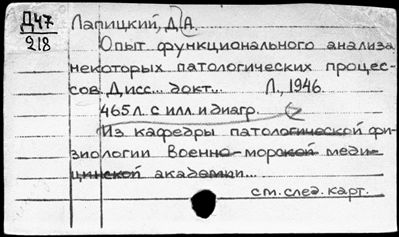 Д47
218
Лапицкий, Д.А.
Опыт функционального анализа
некоторых патологических процес-
сов. Дисс... докт... Л., 1946.
465 л. с илл. и диагр.
Из кафедры патологической фи-
зиологии Военно-морской меди-
цинской академии...
см. след. карт.